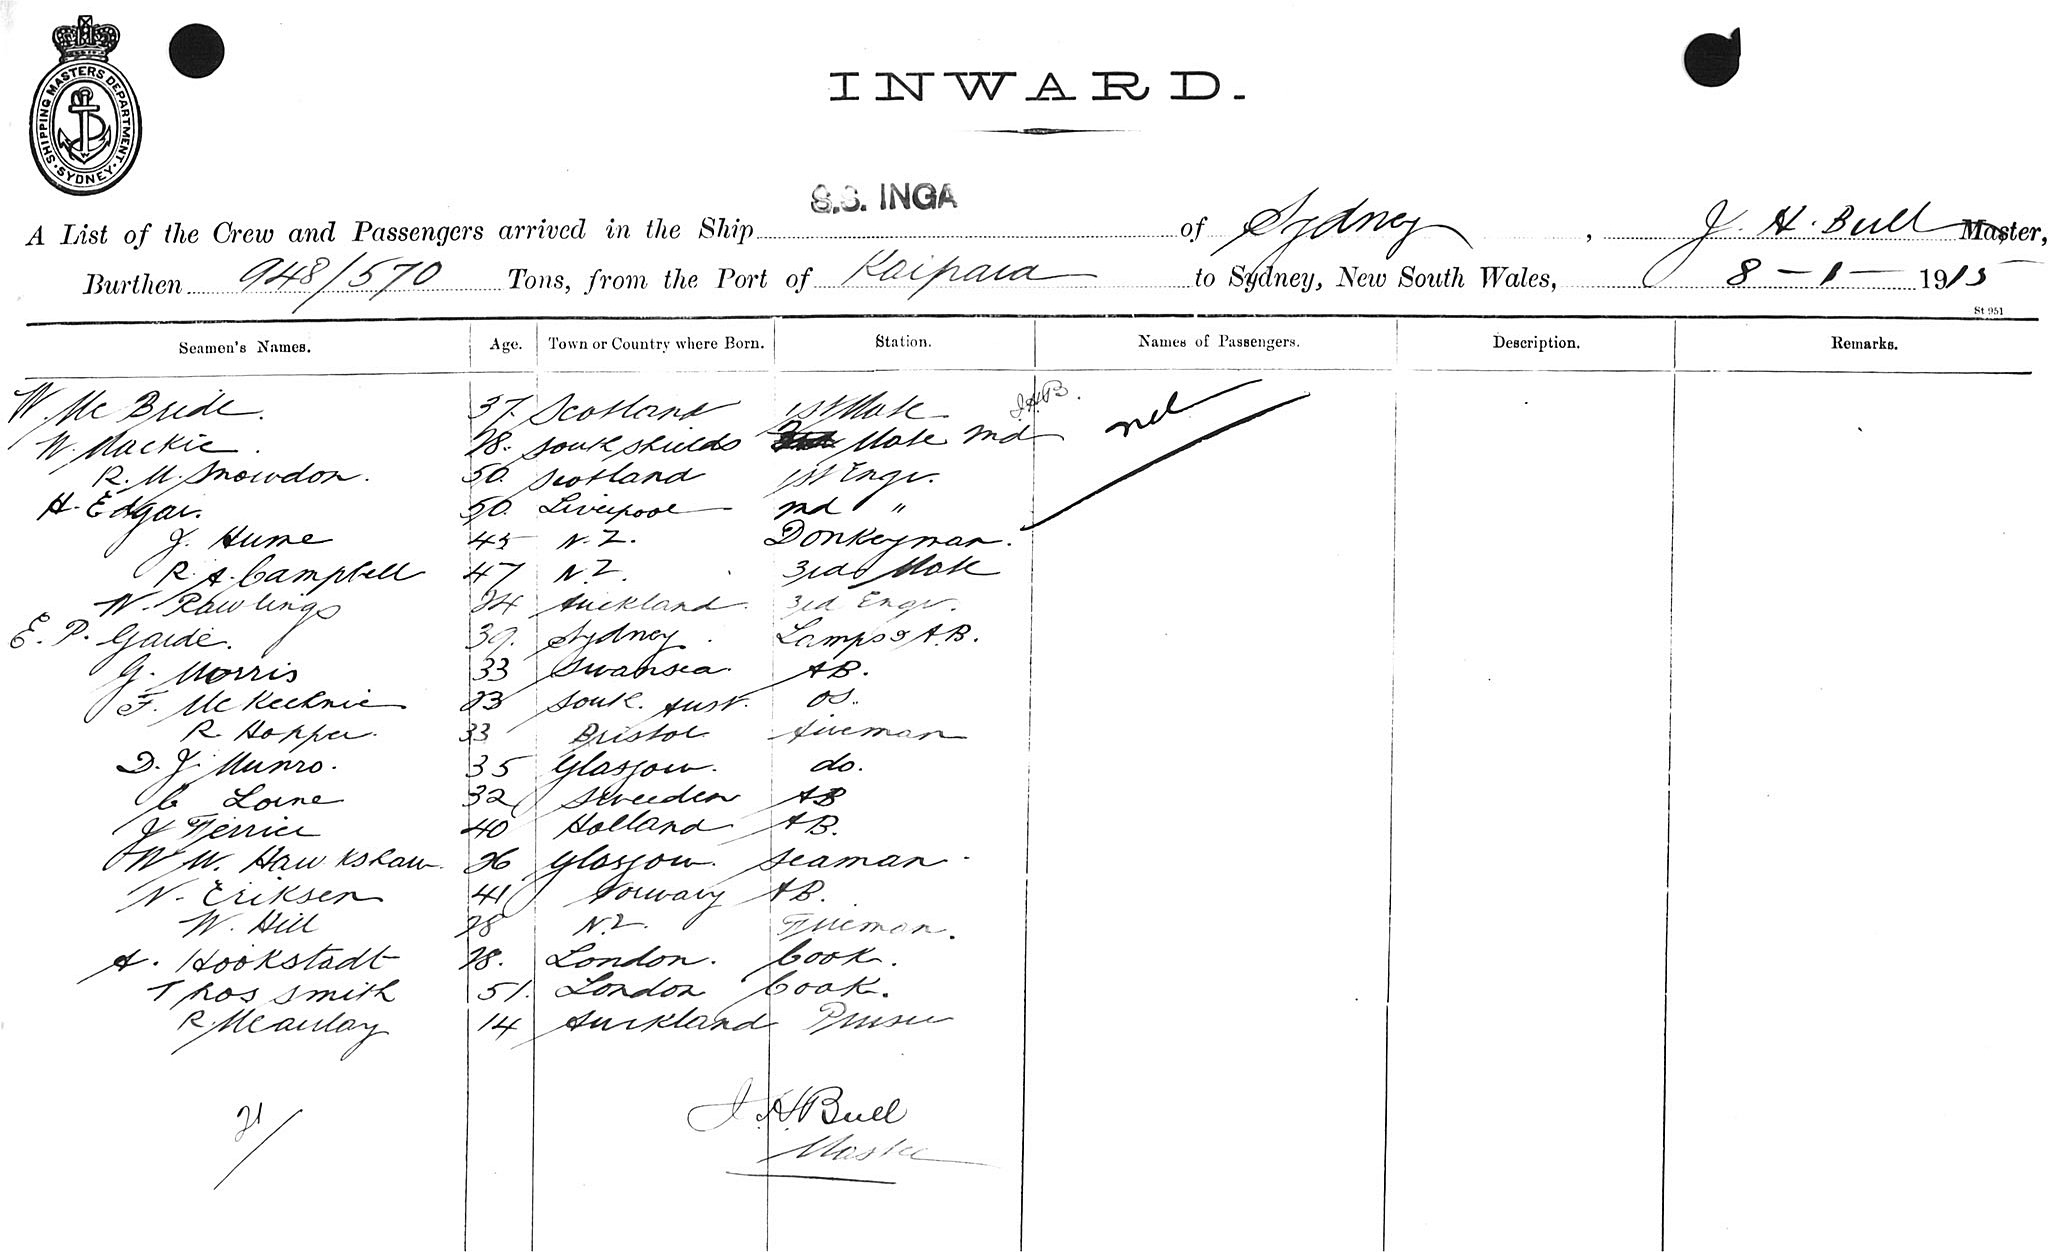 SHIPPING MASTERS DEPARTMENT
SYDNEY
INWARD.
S.S. INGA
A List of the Crew and Passengers arrived in the Ship of Sydney, J. H. Bull Master,
Burthen 948/570 Tons, from the Port of Kaipara to Sydney, New South Wales, 8-1-1915
St 951
Seamen's Names. Age. Town or Country where Born. Station. Names of Passengers. Description. Remarks.
W. McBride. 37. Scotland 1st Mate J.H.B. nil
W. Mackie. 28. South Shields Mate 2nd
R. M. Snowdon. 50. Scotland 1st Engr.
H. Edgar. 50. Liverpool 2nd "
J. Hume 45 N.Z. Donkeyman.
R. A. Campbell 47 N.Z. 3rd Mate
W. Rawlings 24 Auckland. 3rd Engr.
E. P. Garde. 39. Sydney. Lamps & A.B.
G. Morris 33 Swansea. AB.
F. McKechnie 23 South. Aust. OS.
R. Hopper. 33 Bristol Fireman
D. J. Munro. 35 Glasgow. do.
C Lorne 32 Sweeden AB
J 40 Holland AB.
W W. Hawkshaw. 26 Glasgow. Seaman.
N. Eriksen 41 Norway AB.
W. Hill 28 N.Z. Fireman.
A. Hookstadt 28. London. Cook.
Thos Smith 51. London Cook.
R. McAulay 14 Auckland
21/
J. H. Bull
Master